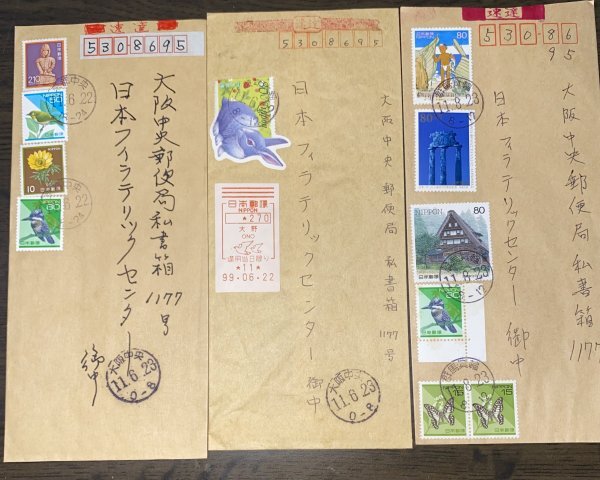 速達
5308695
大阪中央郵便局私書箱
1177号
日本フィラテリックセンター
御中
210
日本郵便
NIPPON
10
日本郵便
日本郵便
大阪中央
11.6.23
0-8
速達
5308695
大阪中央郵便局 私書箱 1177号
日本フィラテリックセンター 御中
日本郵便
NIPPON
*270
大野
ONO
*11*
99.06.22
大阪中央
11.6.23
0-8
速達
530-86
95
大阪中央郵便局私書箱1177
日本フィラテリックセンター 御中
80
80
NIPPON
80
日本郵便
11.8.23
15